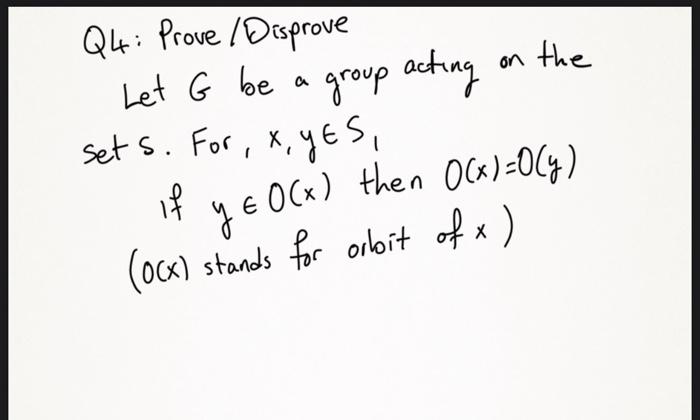 Q4: Prove/Disprove
Let G be a group acting on the
set S. For, x, y ∈ S,
if y ∈ O(x) then O(x)=O(y)
(O(x) stands for orbit of x)